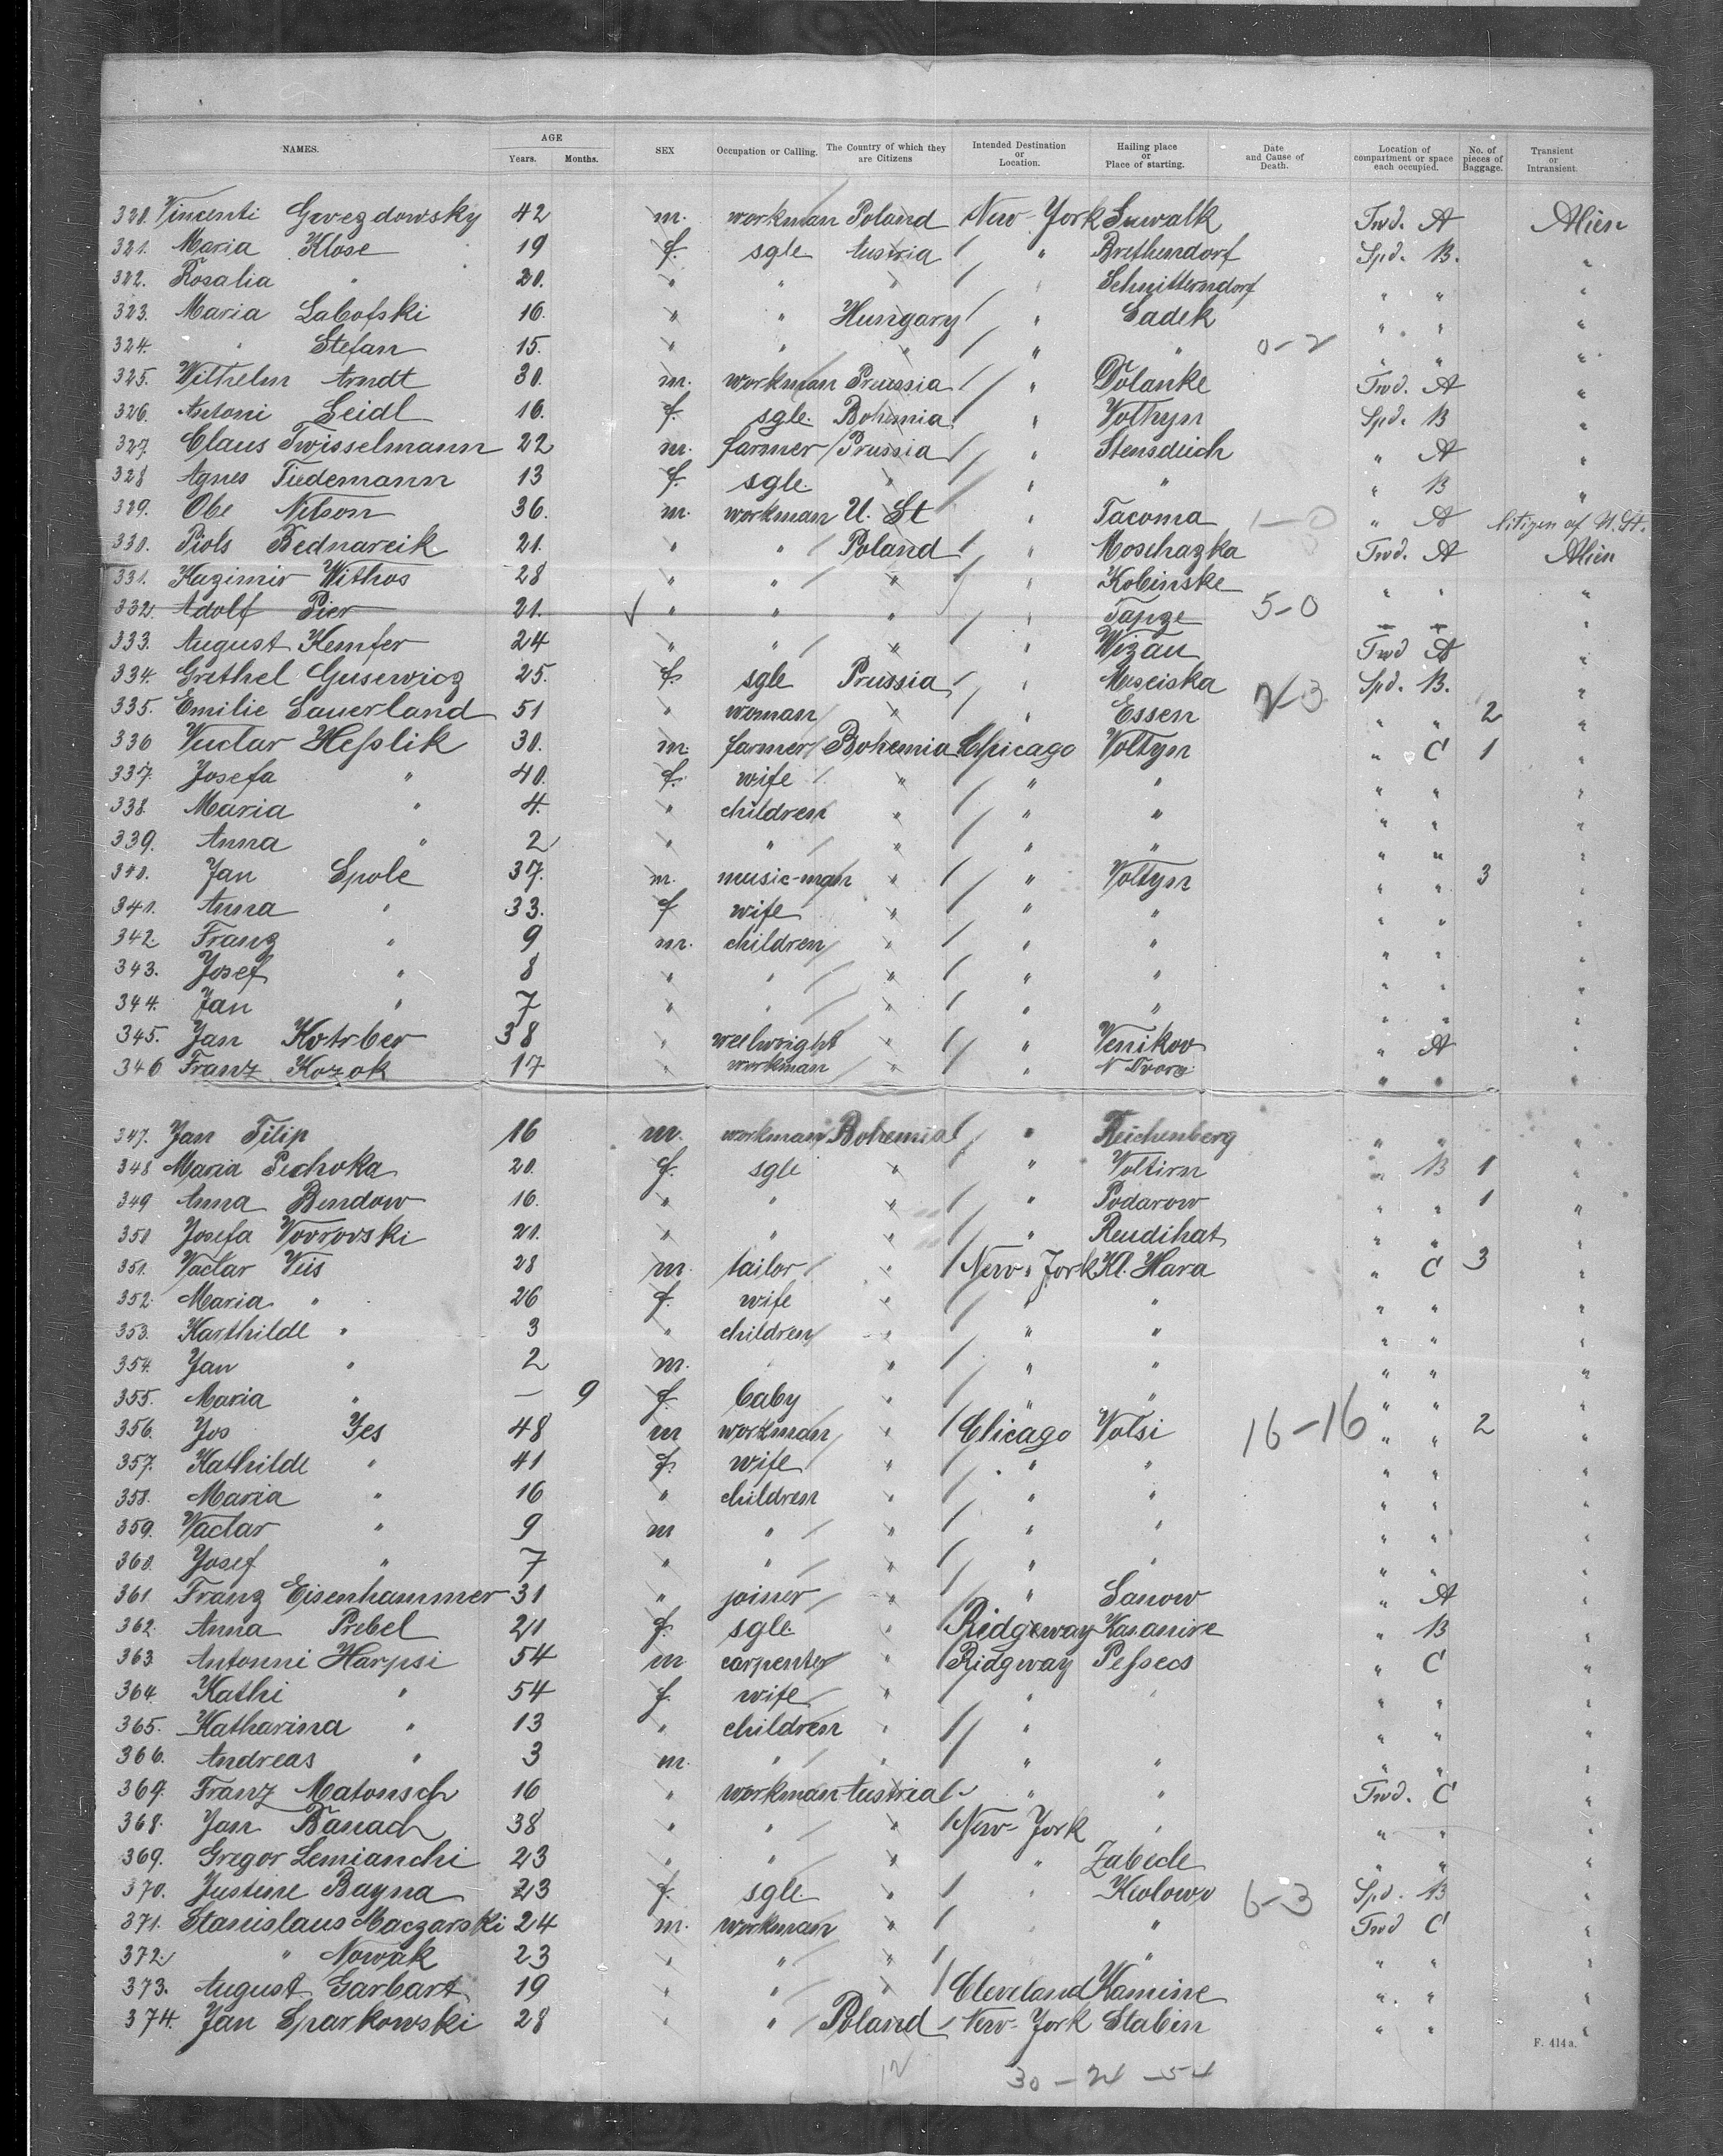 NAMES. AGE Years. Months. SEX Occupation or Calling. The Country of which they are Citizens Intended Destination or Location. Hailing place or Place of starting. Date and Cause of Death. Location of compartment or space each occupied. No. of pieces of Baggage. Transient or Intransient.
320. Vincenti Gwezdowsky 42 m. workman Poland New-York Suwalk Twd. A Alien
321. Maria Klose 19 f. sgle Austria / " Brethendorf Spd. B. "
322. Rosalia " 20. " " " / " Schnitterndorf " " "
323. Maria Labofski 16. " " Hungary / " Ladek " " "
324. " Stefan 15. " " " / " " 0-2 " " "
325. Wilhelm Arndt 30. m. workman Preussia / " Dolanke Twd. A "
326. Antoni Seidl 16. f. sgle. Bohemia / " Vothyn Spd. B "
327. Claus Twisselmann 22 m. farmer Prussia / " Stensdeich " A "
328 Agnes Tiedemann 13 f. sgle. " / " " " B "
329. Obe Nelson 36. m. workman U. St " Tacoma 1-0 " A Citizen of U. St.
330. Piols Bednarcik 21. " " Poland / " Moschazka Twd. A Alien
331. Kazimir Withos 28 " " " / " Kobinske " " "
332. Adolf Pier 21. √ " " " " Tapze 5-0 "
333. August Kemfer 24 " " " / " Wizau Twd A "
334. Grethel Gusewicz 25. f. sgle Prussia / " Mesciska Spd. B. "
335. Emilie Sauerland 51 " woman " / " Essen 2-3 " " 2 "
336 Vuctar Heſslik 30. m. farmer Bohemia Chicago Voltyn " C 1 "
337. Josefa " 40. f. wife " / " " " " "
338. Maria " 4. " children " / " " " " "
339. Anna " 2 " " " / " " " " "
340. Jan Spole 37. m. music-man " / " Voltyn " " 3 "
341. Anna " 33. f wife " / " " " " "
342. Franz " 9 m. children " / " " " " "
343. Josef " 8 " " " / " " " " "
344. Jan " 7 " " " / " " " " "
345. Jan Kotrber 38 " weelwright " / " Venikov " A "
346 Franz Kozok 17 " workman " / " N Tvora " " "
347. Jan Filip 16 m. workman Bohemia / " Reichenberg " " "
348 Maria Pechoka 20. f. sgle " / " Voltirn " B 1 "
349 Anna Bendow 16. " " " / " Podarow " " 1 "
350 Josefa Vovrovski 21. " " " / " Reudihat " " "
351. Vactar Veis 28 m. tailor " / New-York Kl. Hara " C 3 "
352. Maria " 26 f. wife " / " " " " "
353. Karthilde " 3 " children " / " " " " "
354. Jan " 2 m. " " / " " " " "
355. Maria " — 9 f. baby " / " " " " "
356. Jos Jes 48 m workman " / Chicago Votsi 16-16 " " 2 "
357. Kathilde " 41 f. wife " / " " " " "
358. Maria " 16 " children " / " " " " "
359. Vactar " 9 m " " / " " " " "
360. Josef " 7 " " " / " " " " "
361 Franz Eisenhammer 31 " joiner " / " Sanow " A "
362. Anna Prebel 21 f. sgle. " Ridgeway Kasanire " B "
363. Antonni Harpsi 54 m carpenter " / Ridgway Peſsecs " C "
364. Kathi " 54 f. wife " / " " " " "
365. Katharina " 13 " children " / " " " "
366. Andreas " 3 m. " " / " " " " "
369. Franz Matonsch 16 " workman Austria / " " Twd. C "
368. Jan Banach 38 " " " / New-York " " " "
369. Gregor Lemianchi 23 " " " " Zabede " " "
370. Justine Bayna 23 f. sgle. " / " Kwlowo 6-3 Spd. B "
371. Stanislaus Maczarski 24 m. workman " / " " Twd C "
372. " Nowak 23 " " " / " " " "
373. August Garbart 19 " " " / Cleveland Kamine " " "
374. Jan Sparkowski 28 " " Poland / New-York Stabin " " "
F. 414a.
12 30-24-54